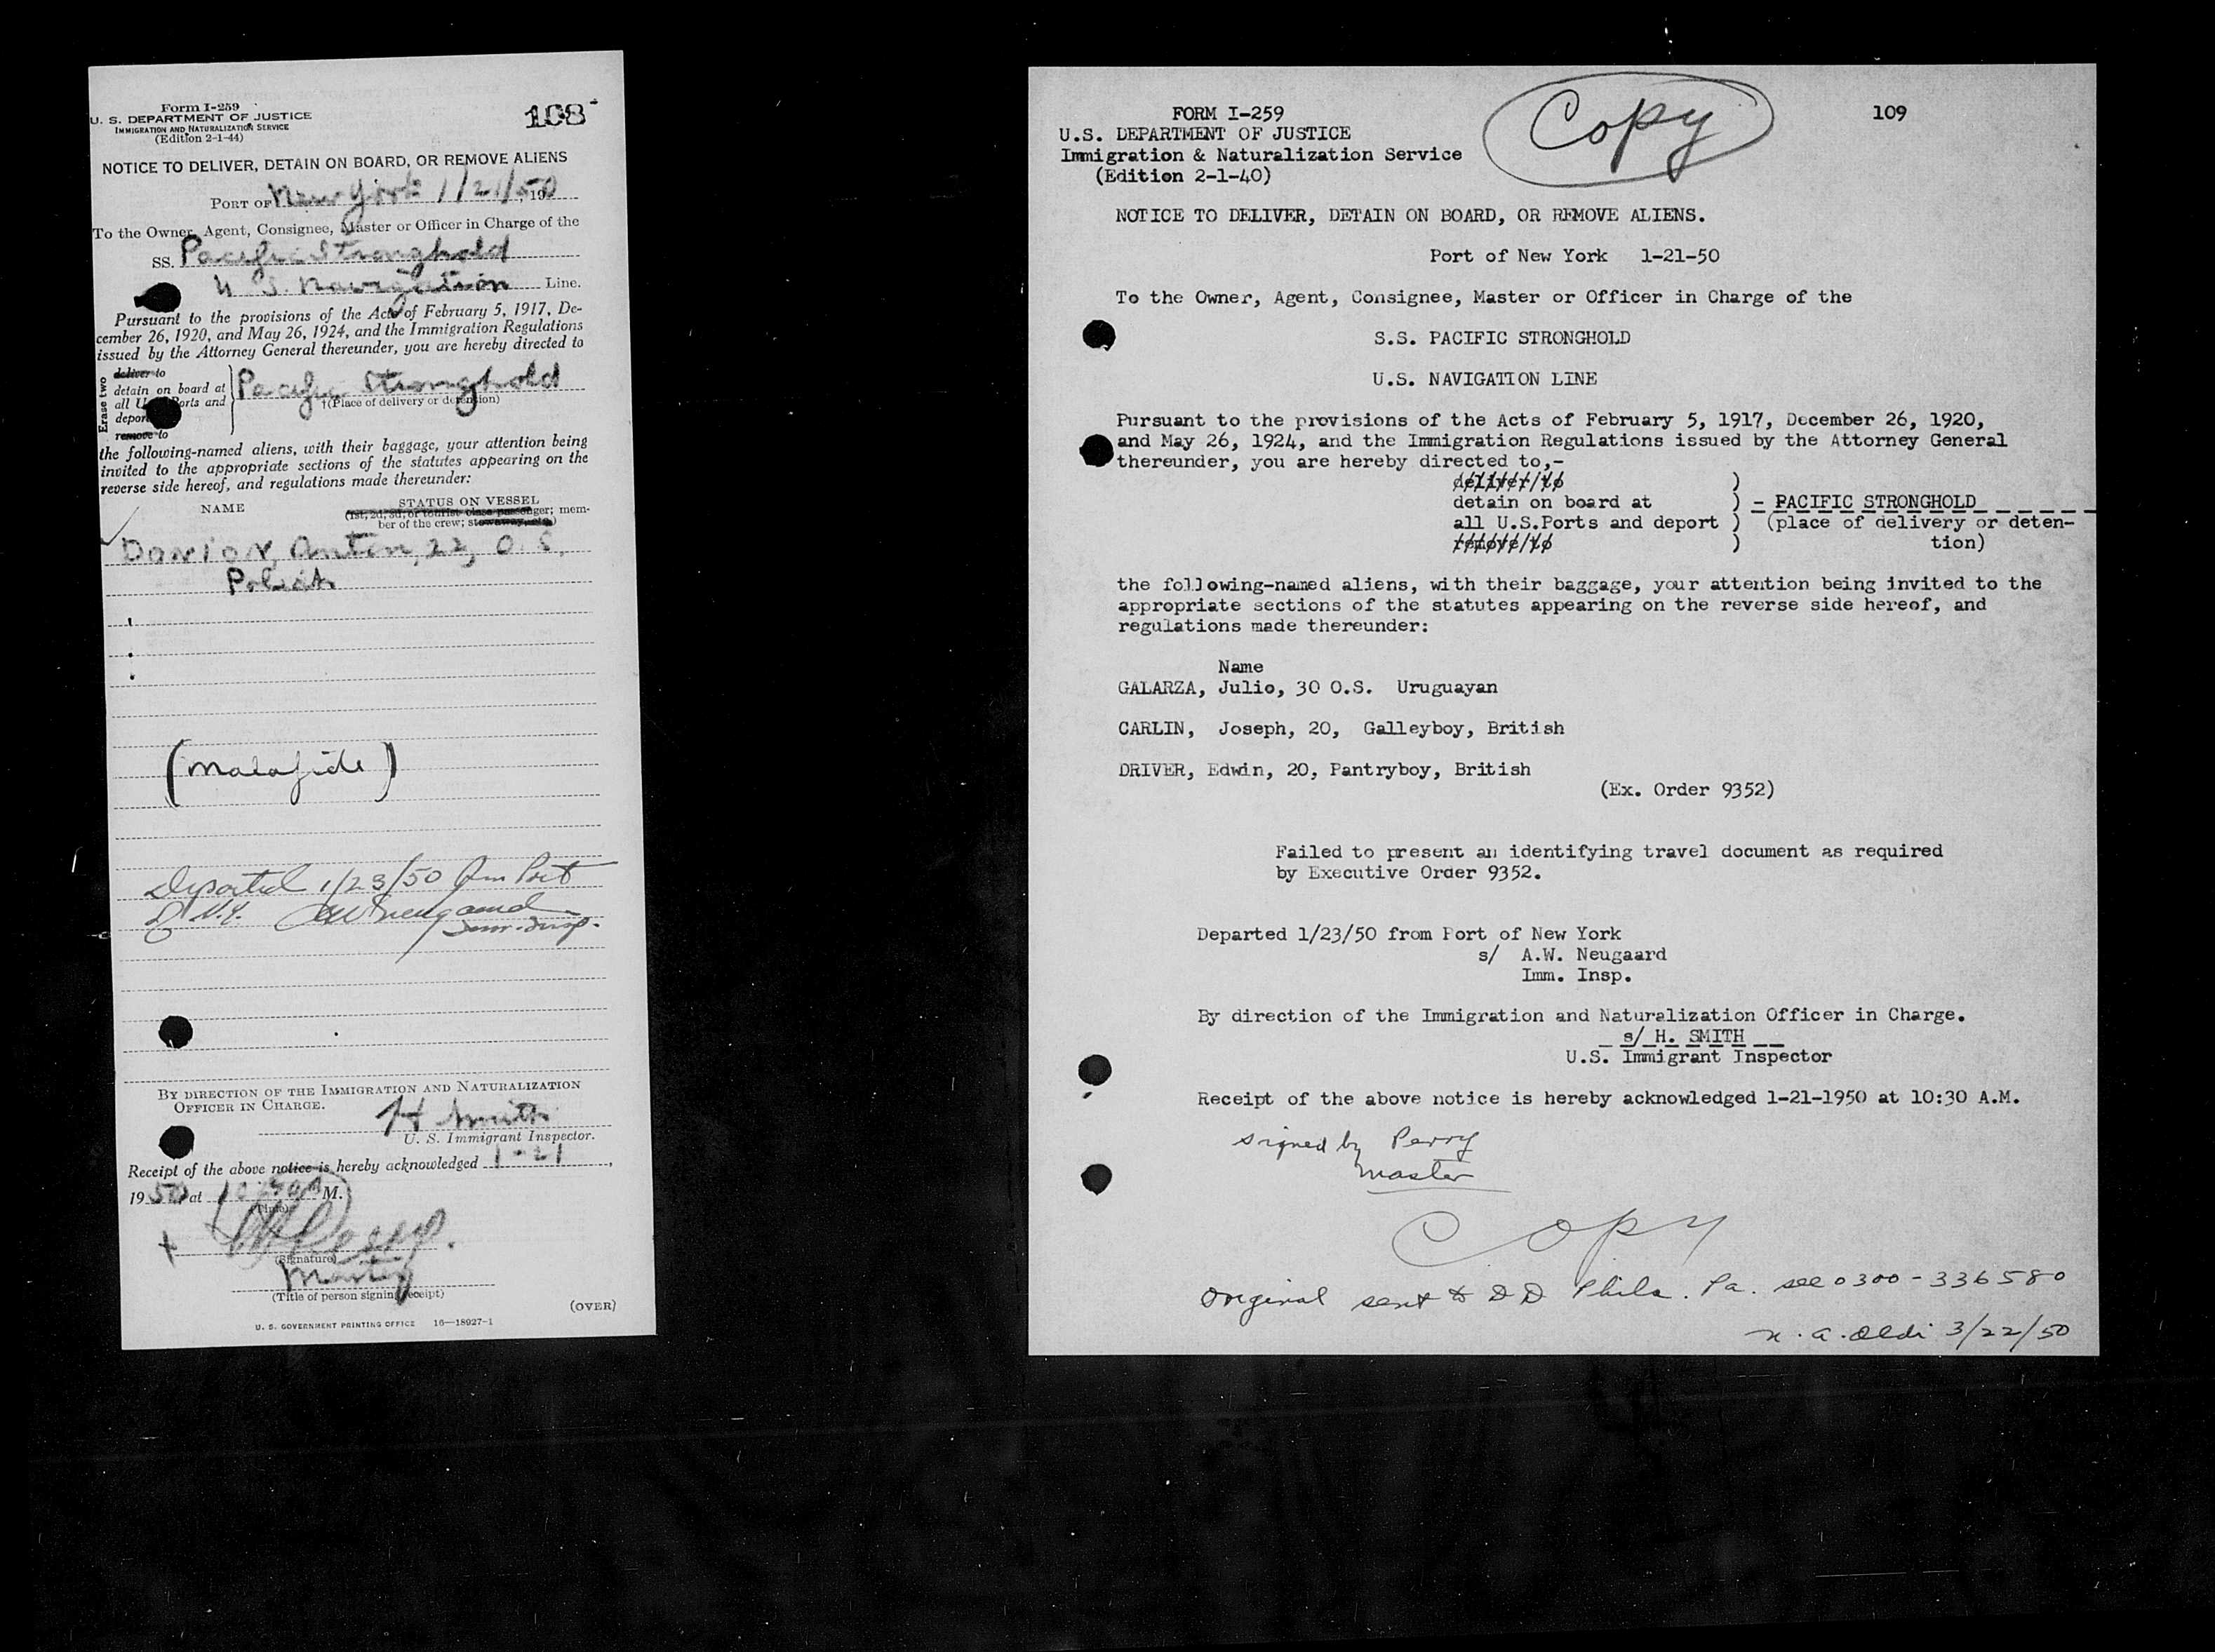 Form I-259
U. S. DEPARTMENT OF JUSTICE
IMMIGRATION AND NATURALIZATION SERVICE
(Edition 2-1-44)
108
NOTICE TO DELIVER, DETAIN ON BOARD, OR REMOVE ALIENS
PORT OF New York 1/21/50, 19
To the Owner, Agent, Consignee, Master or Officer in Charge of the
SS. Pacific Stronghold
U. S. Navigation Line.
Pursuant to the provisions of the Acts of February 5, 1917, De-
cember 26, 1920, and May 26, 1924, and the Immigration Regulations
issued by the Attorney General thereunder, you are hereby directed to
Erase two
deliver to
detain on board at
all U. Ports and
depor
remove to
Pacific Stronghold
†(Place of delivery or detention)
the following-named aliens, with their baggage, your attention being
invited to the appropriate sections of the statutes appearing on the
reverse side hereof, and regulations made thereunder:
NAME
STATUS ON VESSEL
(1st, 2d, 3d, or tourist class passenger; mem-
ber of the crew; stowaway, etc.)
Anton, 22, O. S.
Polish
(malafide)
Departed 1/23/50 from Port
of N.Y. AW Neugaard
Imm. Insp.
BY DIRECTION OF THE IMMIGRATION AND NATURALIZATION
OFFICER IN CHARGE.
H Smith
U. S. Immigrant Inspector.
Receipt of the above notice is hereby acknowledged 1-21,
1950 at 10 30 A M.
(Time)
(Signature)
Master
(Title of person signing receipt)
(OVER)
U. S. GOVERNMENT PRINTING OFFICE 16—18927-1
Copy
109
FORM I-259
U.S. DEPARTMENT OF JUSTICE
Immigration & Naturalization Service
(Edition 2-1-40)
NOTICE TO DELIVER, DETAIN ON BOARD, OR REMOVE ALIENS.
Port of New York 1-21-50
To the Owner, Agent, Consignee, Master or Officer in Charge of the
S.S. PACIFIC STRONGHOLD
U.S. NAVIGATION LINE
Pursuant to the provisions of the Acts of February 5, 1917, December 26, 1920,
and May 26, 1924, and the Immigration Regulations issued by the Attorney General
thereunder, you are hereby directed to,-
deliver/to )
detain on board at ) - PACIFIC STRONGHOLD
all U.S.Ports and deport ) (place of delivery or deten-
remove/to ) tion)
the following-named aliens, with their baggage, your attention being invited to the
appropriate sections of the statutes appearing on the reverse side hereof, and
regulations made thereunder:
Name
GALARZA, Julio, 30 O.S. Uruguayan
CARLIN, Joseph, 20, Galleyboy, British
DRIVER, Edwin, 20, Pantryboy, British
(Ex. Order 9352)
Failed to present an identifying travel document as required
by Executive Order 9352.
Departed 1/23/50 from Port of New York
s/ A.W. Neugaard
Imm. Insp.
By direction of the Immigration and Naturalization Officer in Charge.
s/ H. SMITH
U.S. Immigrant Inspector
Receipt of the above notice is hereby acknowledged 1-21-1950 at 10:30 A.M.
signed by Perry
master
Copy
Original sent to DD Phila. Pa. see 0300-336580
3/22/50